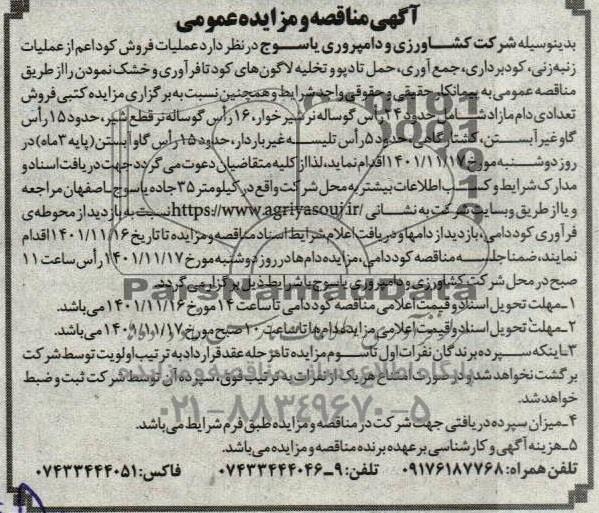 آگهی مناقصه و مزایده عمومی
بدینوسیله شرکت کشاورزی و دامپروری یاسوج در نظر دارد عملیات فروش کود اعم از عملیات
زنبه زنی، کودبرداری، جمع آوری، حمل تا دپو و تخلیه لاگون های کود تا فرآوری و خشک نمودن را از طریق
مناقصه عمومی به پیمانکار حقیقی و حقوقی واجد شرایط و همچنین نسبت به برگزاری مزایده کتبی فروش
تعدادی دام مازاد شامل حدود ۲۴ رأس گوساله نر شیرخوار، ۱۶ رأس گوساله نر قطع شیر، حدود ۱۵ رأس
گاو غیر آبستن، کشتارگاهی، حدود ۵ رأس تلیسه غیر باردار، حدود ۱۵ رأس گاو آبستن (پایه ۳ ماه) در
روز دوشنبه مورخ ۱۴۰۱/۱۱/۱۷ اقدام نماید، لذا از کلیه متقاضیان دعوت می گردد جهت دریافت اسناد و
مدارک شرایط و کسب اطلاعات بیشتر به محل شرکت واقع در کیلومتر ۳۵ جاده یاسوج ـ اصفهان مراجعه
و یا از طریق وبسایت شرکت به نشانی https://www.agriyasouj.ir/ نسبت به بازدید از محوطه ی
فرآوری کود دامی، بازدید از دامها و دریافت اعلام شرایط اسناد مناقصه و مزایده تا تاریخ ۱۴۰۱/۱۱/۱۶ اقدام
نمایند، ضمنا جلسه مناقصه کود دامی، مزایده دام ها در روز دوشنبه مورخ ۱۴۰۱/۱۱/۱۷ رأس ساعت ۱۱
صبح در محل شرکت کشاورزی و دامپروری یاسوج با شرایط ذیل برگزار می گردد.
۱ـ مهلت تحویل اسناد و قیمت اعلامی مناقصه کود دامی تا ساعت ۱۴ مورخ ۱۴۰۱/۱۱/۱۶ می باشد.
۲ـ مهلت تحویل اسناد و قیمت اعلامی مزایده دام ها تا ساعت ۱۰ صبح مورخ ۱۴۰۱/۱۱/۱۷ می باشد.
۳ـ اینکه سپرده برندگان نفرات اول تا سوم مزایده تا مرحله عقد قرارداد به ترتیب اولویت توسط شرکت
برگشت نخواهد شد و در صورت امتناع هر یک از نفرات به ترتیب فوق، سپرده آن توسط شرکت ثبت و ضبط
خواهد شد.
۴ـ میزان سپرده دریافتی جهت شرکت در مناقصه و مزایده طبق فرم شرایط می باشد.
۵ـ هزینه آگهی و کارشناسی بر عهده برنده مناقصه و مزایده می باشد.
تلفن همراه: ۰۹۱۷۶۱۸۷۷۶۸ تلفن: ۹ـ۰۷۴۳۳۴۴۴۰۴۶ فاکس: ۰۷۴۳۳۴۴۴۰۵۱
ParsNamadData
پایگاه اطلاع رسانی مناقصه و مزایده
۰۲۱-۸۸۳۴۹۶۷۰-۵